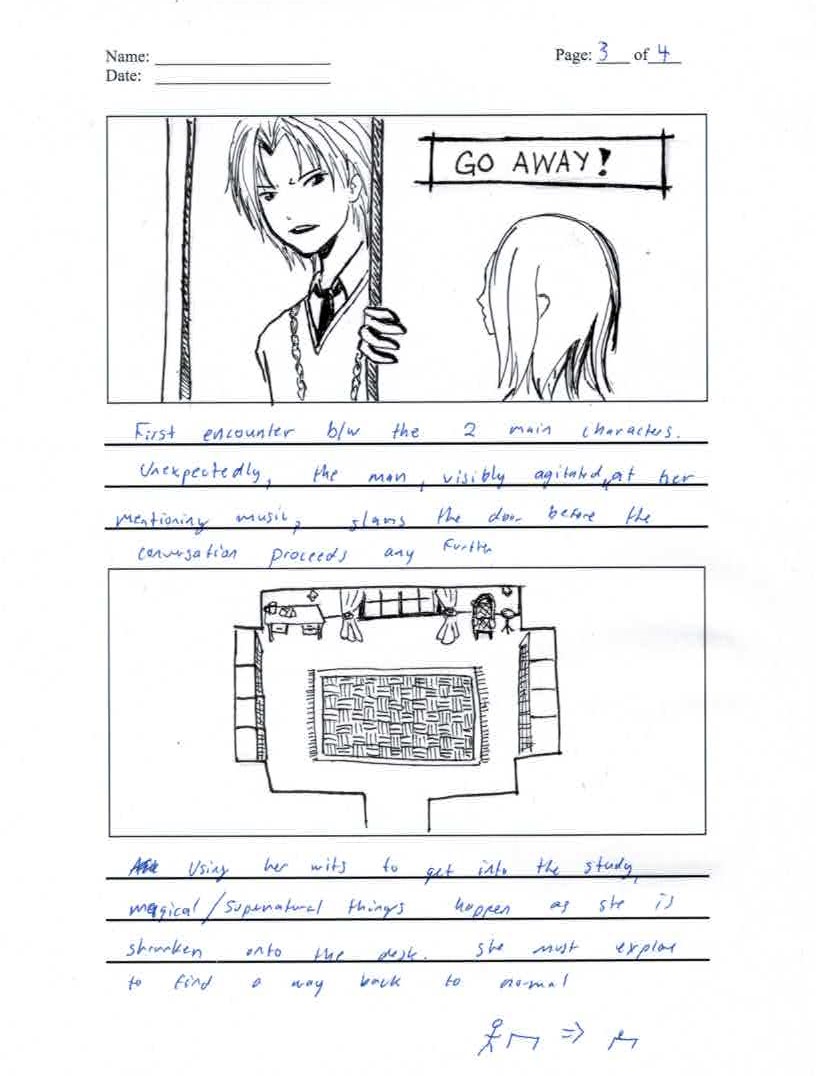 Name:
Page: 3 of 4
Date:
GO AWAY!
First encounter b/w the 2 main characters.
Unexpectedly, the man, visibly agitated, at her
mentioning music, slams the door before the
conversation proceeds any further
Using her wits to get into the study,
magical/supernatural things happen as she is
shrunken onto the desk. She must explore
to find a way back to normal